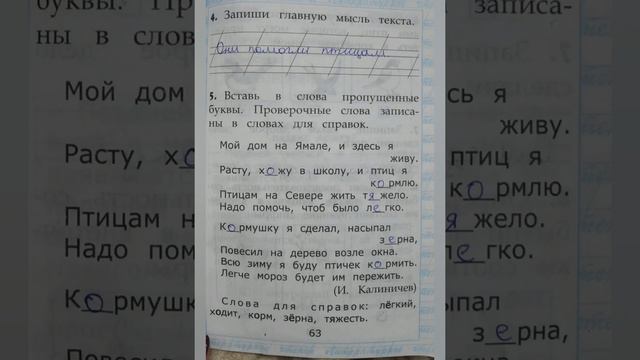 4. Запиши главную мысль текста.
Они помогли птицам
5. Вставь в слова пропущенные
буквы. Проверочные слова записа-
ны в словах для справок.
Мой дом на Ямале, и здесь я
живу.
Расту, хожу в школу, и птиц я
кормлю.
Птицам на Севере жить тяжело.
Надо помочь, чтоб было легко.
Кормушку я сделал, насыпал
зерна,
Повесил на дерево возле окна.
Всю зиму я буду птичек кормить.
Легче мороз будет им пережить.
(И. Калиничев)
Слова для справок: лёгкий,
ходит, корм, зёрна, тяжесть.
63